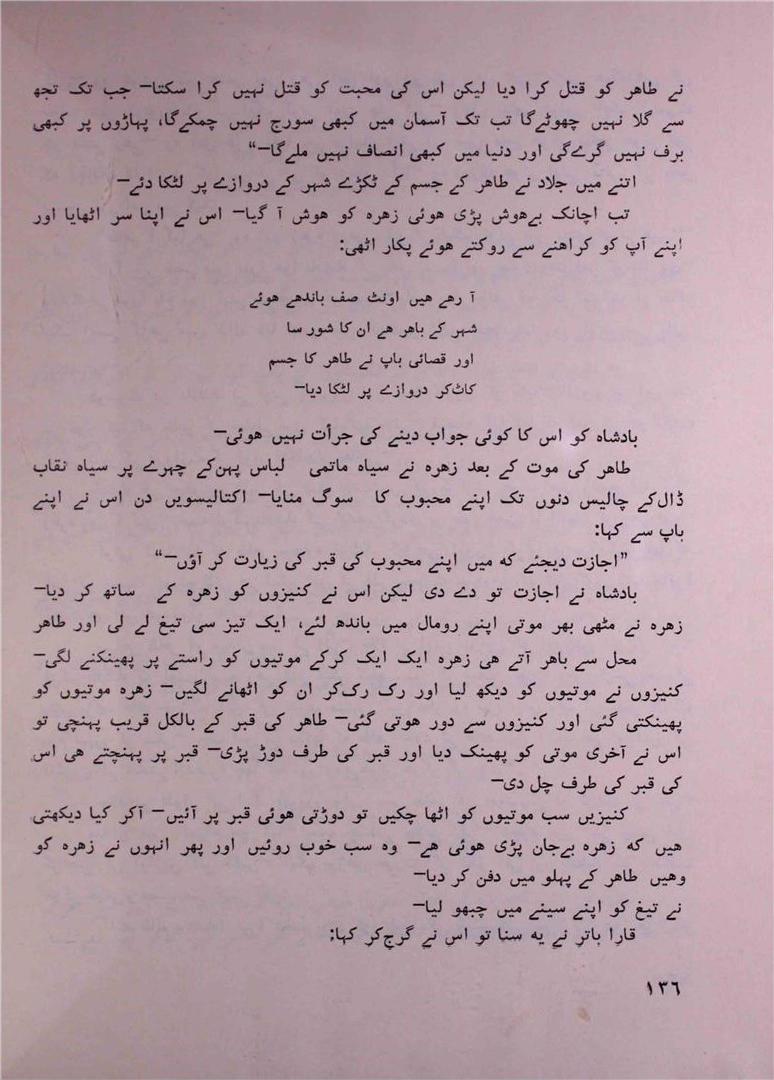 نے طاهر کو قتل کرا دیا لیکن اس کی محبت کو قتل نہیں کرا سکتا— جب تک تجھ
سے گلا نہیں چھوٹےگا تب تک آسمان میں کبھی سورج نہیں چمکےگا، پہاڑوں پر کبھی
برف نہیں گرےگی اور دنیا میں کبھی انصاف نہیں ملےگا—“
اتنے میں جلاد نے طاهر کے جسم کے ٹکڑے شہر کے دروازے پر لٹکا دئے—
تب اچانک بےهوش پڑی هوئی زهرہ کو هوش آ گیا— اس نے اپنا سر اٹھایا اور
اپنے آپ کو کراهنے سے روکتے هوئے پکار اٹھی:
آ رهے هیں اونٹ صف باندهے هوئے
شہر کے باهر هے ان کا شور سا
اور قصائی باپ نے طاهر کا جسم
کاٹ‌کر دروازے پر لٹکا دیا—
بادشاہ کو اس کا کوئی جواب دینے کی جرأت نہیں هوئی—
طاهر کی موت کے بعد زهرہ نے سیاہ ماتمی لباس پہن‌کے چہرے پر سیاہ نقاب
ڈال‌کے چالیس دنوں تک اپنے محبوب کا سوگ منایا— اکتالیسویں دن اس نے اپنے
باپ سے کہا:
”اجازت دیجئے کہ میں اپنے محبوب کی قبر کی زیارت کر آؤں—“
بادشاہ نے اجازت تو دے دی لیکن اس نے کنیزوں کو زهرہ کے ساتھ کر دیا—
زهرہ نے مٹھی بھر موتی اپنے رومال میں باندھ لئے، ایک تیز سی تیغ لے لی اور طاهر
محل سے باهر آتے هی زهرہ ایک ایک کرکے موتیوں کو راستے پر پھینکنے لگی—
کنیزوں نے موتیوں کو دیکھ لیا اور رک رک‌کر ان کو اٹھانے لگیں— زهرہ موتیوں کو
پھینکتی گئی اور کنیزوں سے دور هوتی گئی— طاهر کی قبر کے بالکل قریب پہنچی تو
اس نے آخری موتی کو پھینک دیا اور قبر کی طرف دوڑ پڑی— قبر پر پہنچتے هی اس
کی قبر کی طرف چل دی—
کنیزیں سب موتیوں کو اٹھا چکیں تو دوڑتی هوئی قبر پر آئیں— آکر کیا دیکھتی
هیں کہ زهرہ بےجان پڑی هوئی هے— وہ سب خوب روئیں اور پھر انہوں نے زهرہ کو
وهیں طاهر کے پہلو میں دفن کر دیا—
نے تیغ کو اپنے سینے میں چبھو لیا—
قارا باتر نے یہ سنا تو اس نے گرج‌کر کہا:
۱۳٦